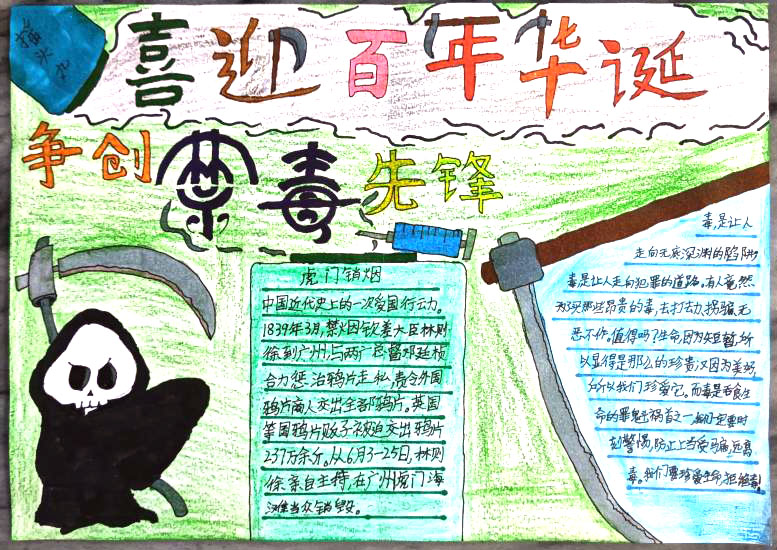 喜迎百年华诞
争创禁毒先锋
虎门销烟
中国近代史上的一次爱国行动。
1839年3月,禁烟钦差大臣林则
徐到广州,与两广总督邓廷桢
合力惩治鸦片走私,责令外国
鸦片商人交出全部鸦片。英国
等国鸦片贩子被迫交出鸦片
237万余斤。从6月3-25日,林则
徐亲自主持,在广州虎门海
滩当众销毁。
毒,是让人
走向无底深渊的陷阱
毒是让人走向犯罪的道路。有人竟然
为买那些昂贵的毒,去打去劫,拐骗,无
恶不作。值得吗?生命,因为短暂,所
以显得是那么的珍贵;又因为美好,
所以我们珍爱它。而毒是吞食生
命的罪魁祸首之一,我们一定要时
刻警惕,防止上当受骗,远离
毒。我们要珍爱生命,拒绝毒!